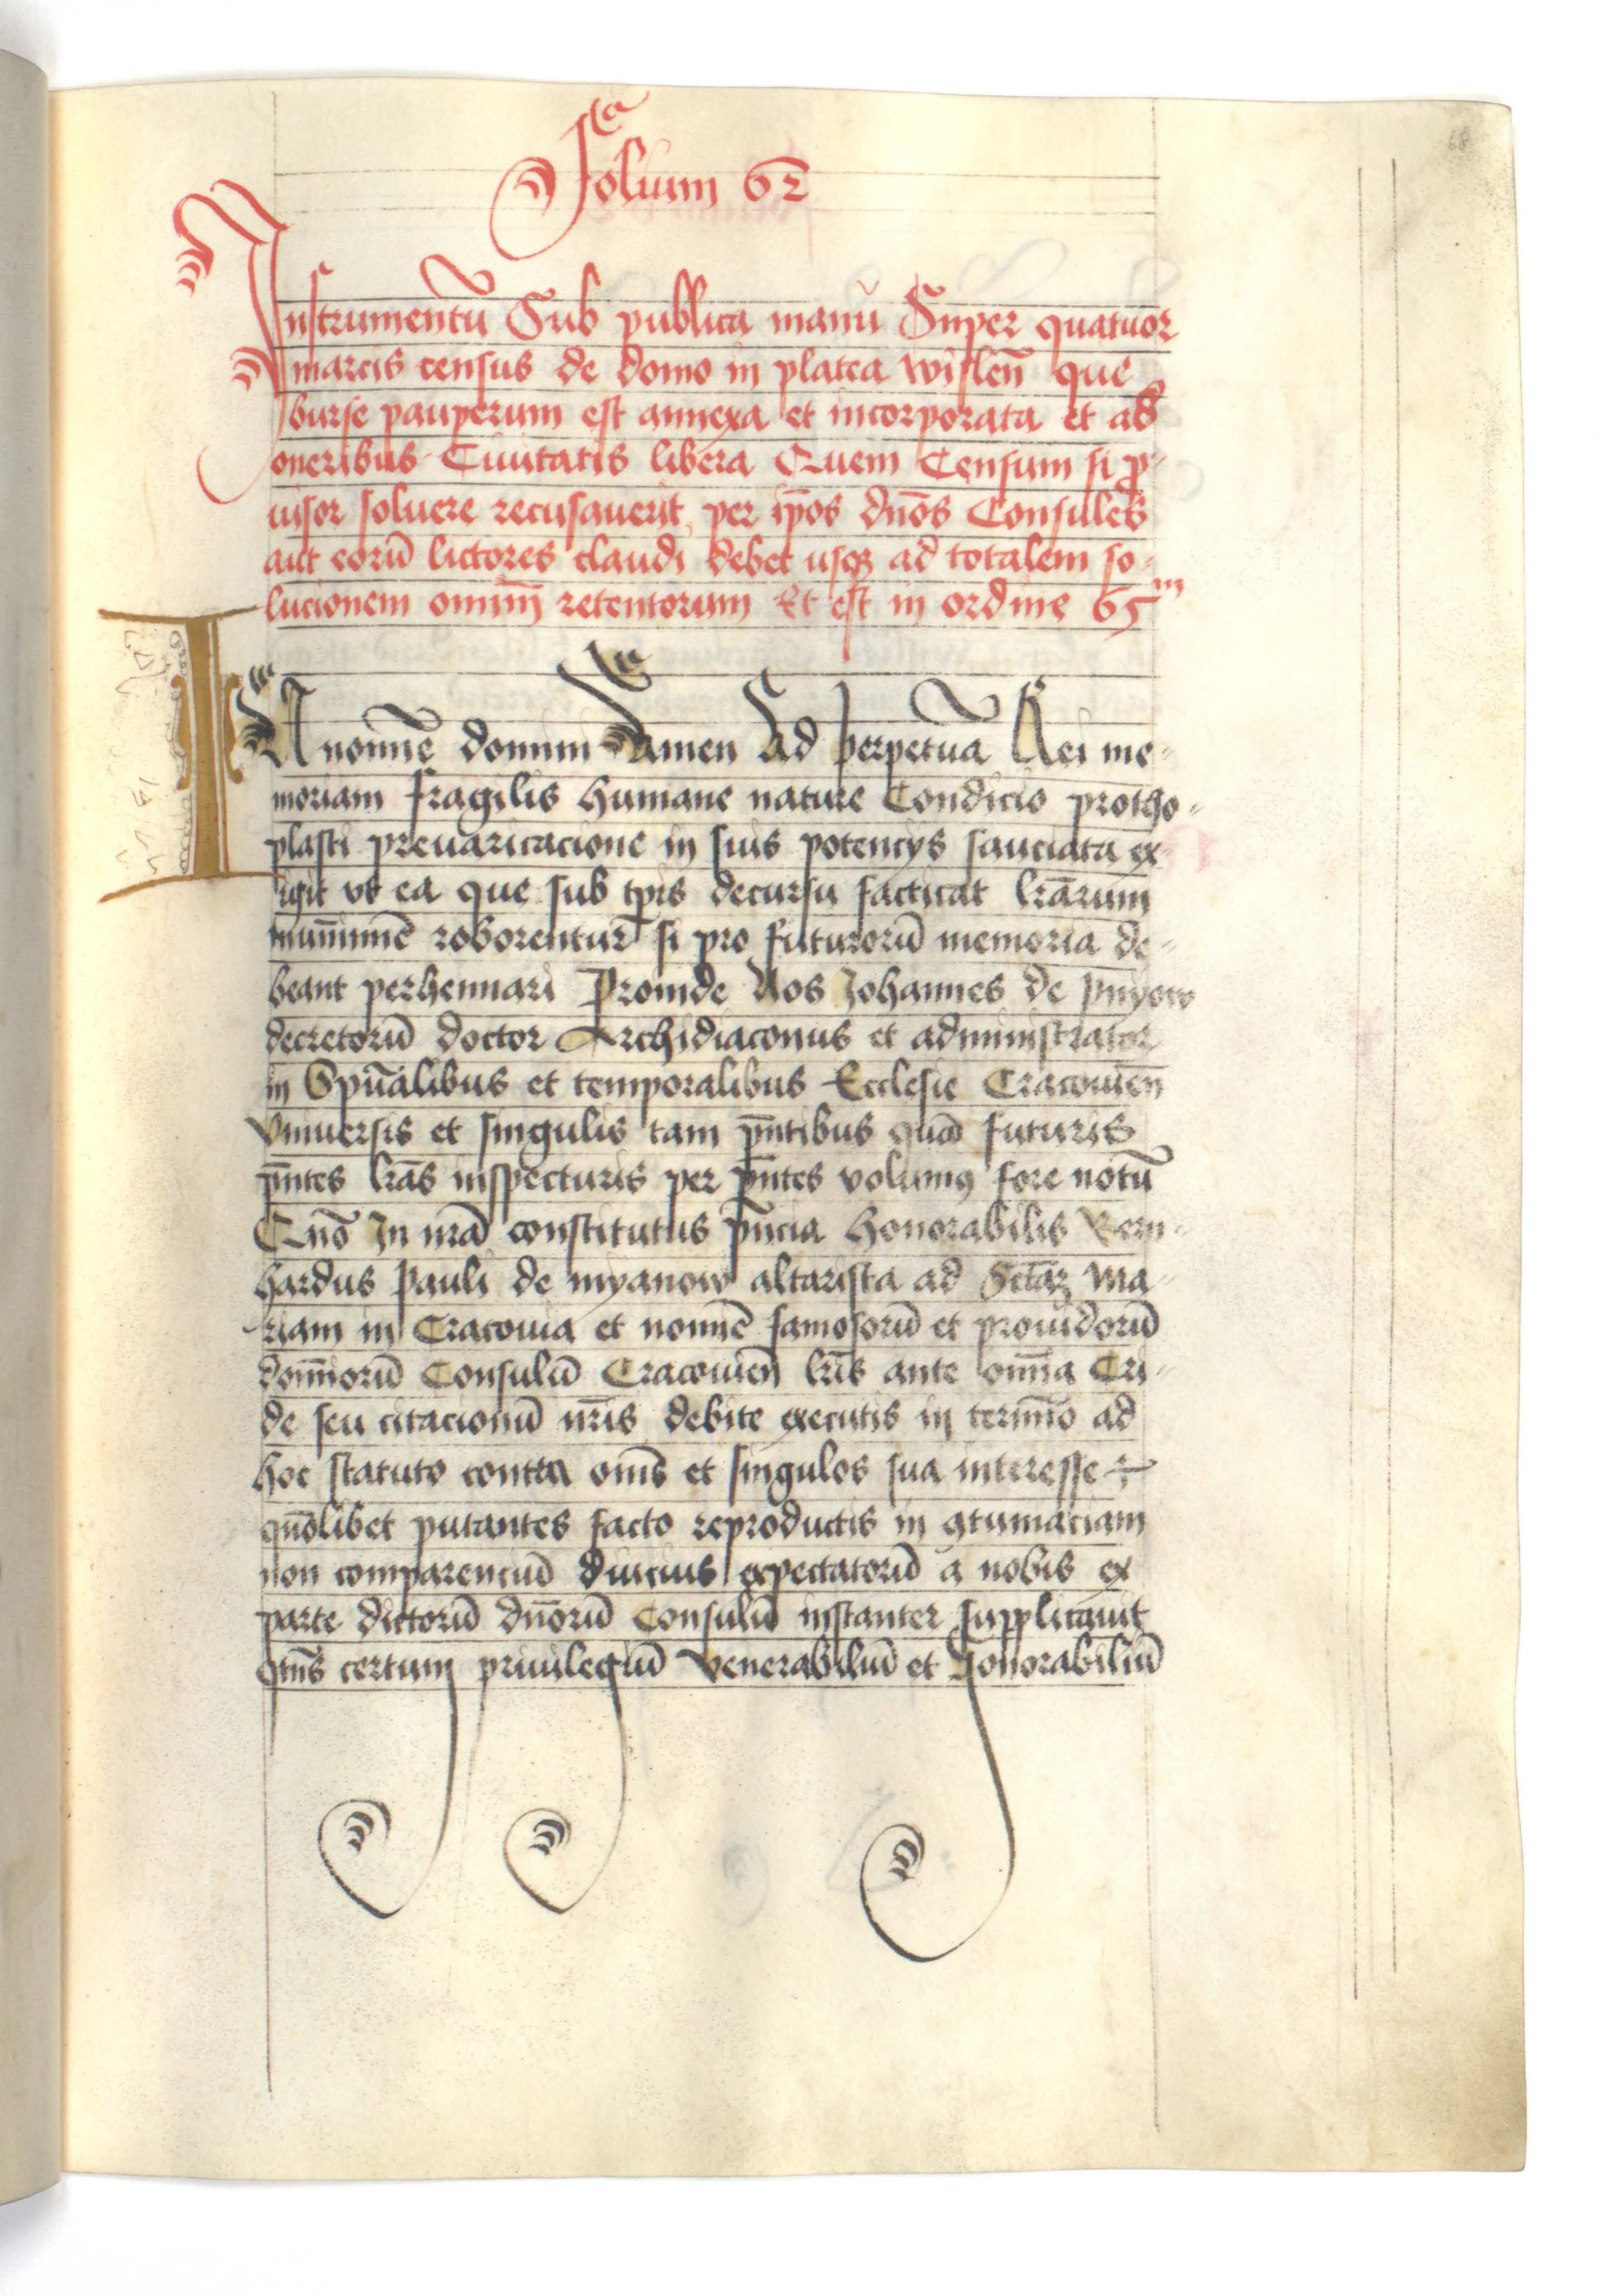 Folium 62
68
Instrumentū Sub publica manū Super quatuor
marcis census de domo in platea wislen̄ que
burse pauperum est annexa et incorporata et ab
oneribus Ciuitatis libera Quem Censum si ꝓ-
uisor soluere recusauerit per ip̄os dn̄os Consules
aut eorū lictores claudi debet usqꝫ ad totalem so-
lucionem omniū retentorum Et est in ordine 65ᵐ
In nomīe domini Amen Ad perpetuā Rei me-
moriam fragilis humane nature Condicio protho-
plasti preuaricacione in suis potencijs sauciata ex-
igit vt ea que sub tp̄is decursu factitat lr̄arum
munimīe roborentur si pro futurorū memoria de-
beant perhennari Proinde Nos Johannes de
decretorū doctor Archidiaconus et administrator
in Sp̄ualibus et temporalibus Ecclesie Cracouien̄
Vniuersis et singulis tam p̄ntibus quā futuris
p̄ntes lr̄as inspecturis per p̄ntes volumꝰ fore notū
Quō In nr̄a constitutus p̄ncia honorabilis Bern-
hardus Pauli de myanow altarista ad Sctāꝫ Ma-
riam in Cracouia et nomīe famosorū et prouidorū
domīorū Consulū Cracouien̄ lr̄is ante om̄ia Cri-
de seu citacionū nr̄is debite executis in termīo ad
hoc statuto contra om̄s et singulos sua interesse
quōlibet putantes facto reproductis in ꝯtumaciam
non comparenciū diucius expectatorū a nobis ex
parte dictorū dn̄orū Consulū instanter supplicauit
qtn̄s certum priuilegiū Venerabiliū et Honorabiliū